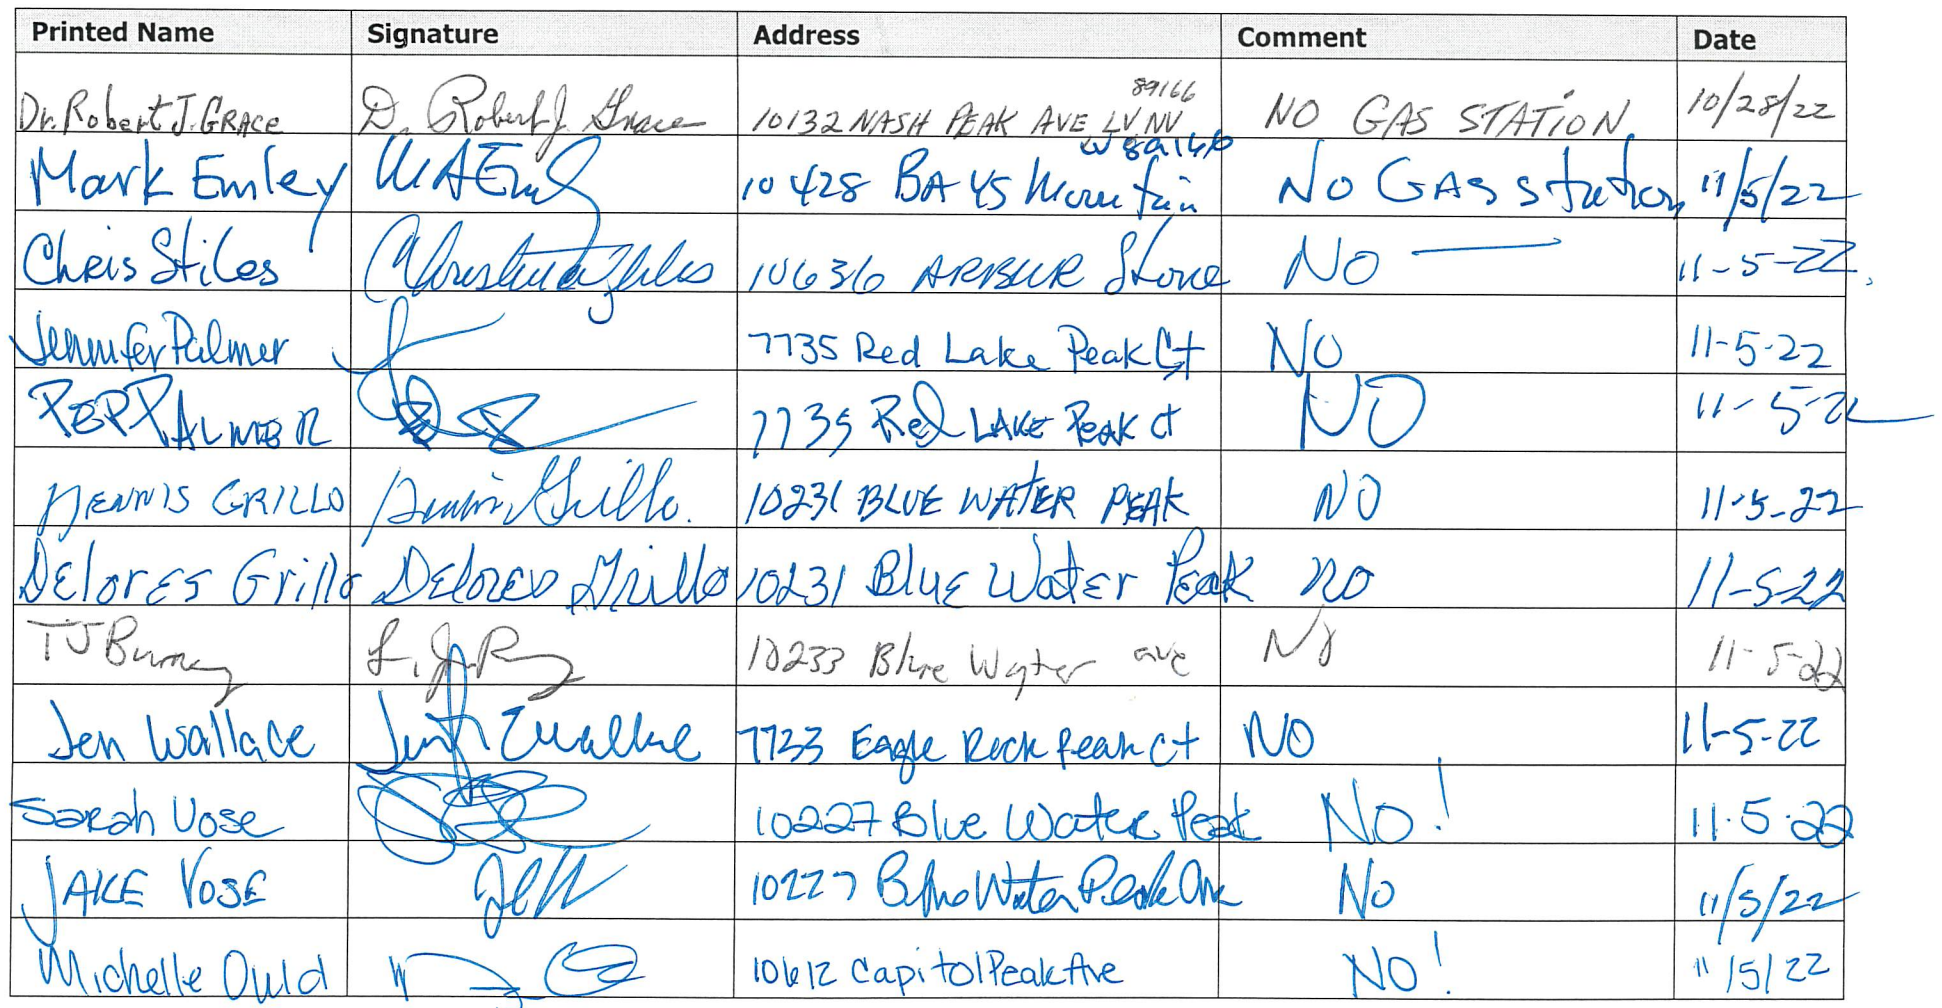 Printed Name Signature Address Comment Date
89166
Dr. Robert J. GRACE D. Robert J. Grace 10132 NASH PEAK AVE LV NV NO GAS STATION 10/28/22
89166
Mark Emley 10428 BAYS Mountain NO GAS station 11/5/22
Chris Stiles 10636 ARBOUR Stone NO 11-5-22
Jennifer Palmer 7735 Red Lake Peak Ct NO 11-5-22
PALMER 7735 Red LAKE PEAK Ct NO 11-5-22
DENNIS GRILLO Dennis Grillo 10231 BLUE WATER PEAK NO 11-5-22
DElorES Grillo DElores Grillo 10231 BluE WatEr PEak no 11-5-22
TJ 10233 Blue Water ave No 11-5-22
Jen Wallace 7733 Eagle Rock Peak Ct NO 11-5-22
Sarah Vose 10227 Blue Water Peak No! 11.5.22
JAKE VOSE 10227 Blue Water Peak Ave No 11/5/22
Michelle Ould 10612 Capitol Peak Ave NO! 11/5/22